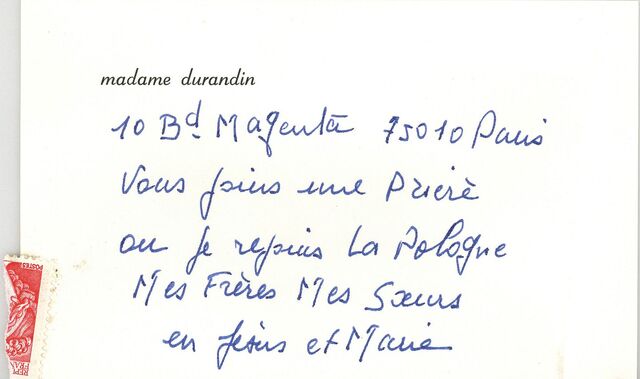 madame durandin
10 Bd Magenta 75010 Paris
Vous joins une Prière
ou je rejoins La Pologne
Mes Frères Mes Sœurs
en Jésus et Marie
POSTES